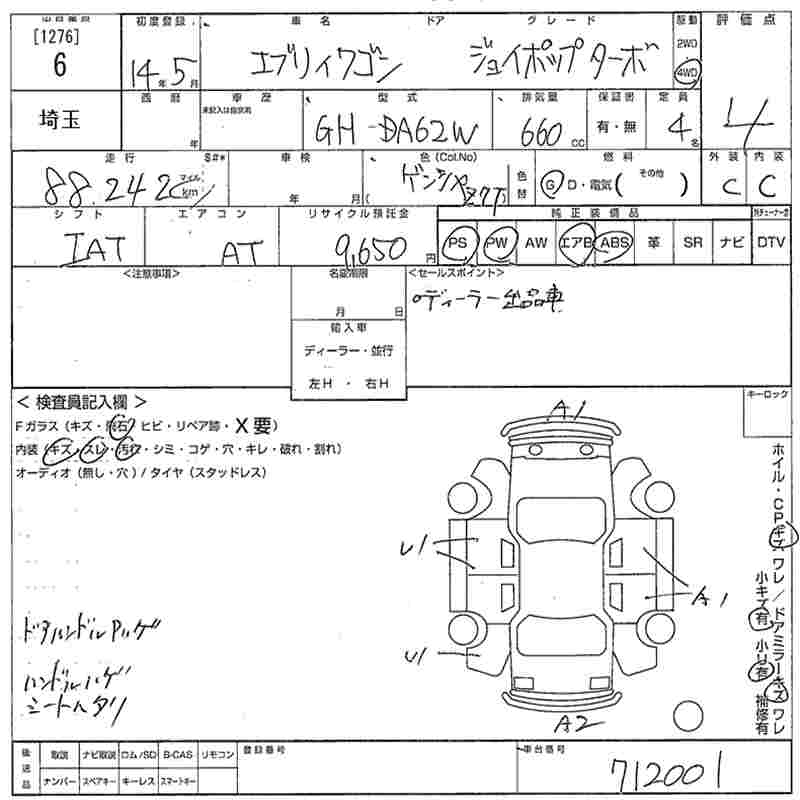 [1276]
6
初度登録
14年5月
車名
エブリィワゴン
ドア
グレード
ジョイポップターボ
駆動
2WD
4WD
評価点
4
埼玉
西暦
年
車歴
未記入は自家用
型式
GH-DA62W
排気量
660cc
保証書
有・無
定員
4名
走行
88.242
マイル
km
S#*
車検
年 月
色(Col.No)
色替
燃料
G D・電気( その他 )
外装
C
内装
C
シフト
IAT
エアコン
AT
リサイクル預託金
9,650円
純正装備品
PS PW AW エアB ABS 革 SR ナビ DTV
<注意事項>
名変期限
月 日
輸入車
ディーラー・並行
左H ・ 右H
<セールスポイント>
ディーラー出品車
<検査員記入欄>
Fガラス(キズ・飛石・ヒビ・リペア跡・X要)
内装(キズ・スレ・汚れ・シミ・コゲ・穴・キレ・破れ・割れ)
オーディオ(無し・穴)/タイヤ(スタッドレス)
キーロック
A1
U1
A1
U1
A2
ホイル・CPキズ ワレ/ドアミラーキズ ワレ
小キズ有 小U有 補修有
ドアハンドルハゲ
ハンドルハゲ
シートヘタリ
後送品
取説 ナビ取説 ロム/SD B-CAS リモコン
ナンバー スペアキー キーレス スマートキー
登録番号
車台番号
712001